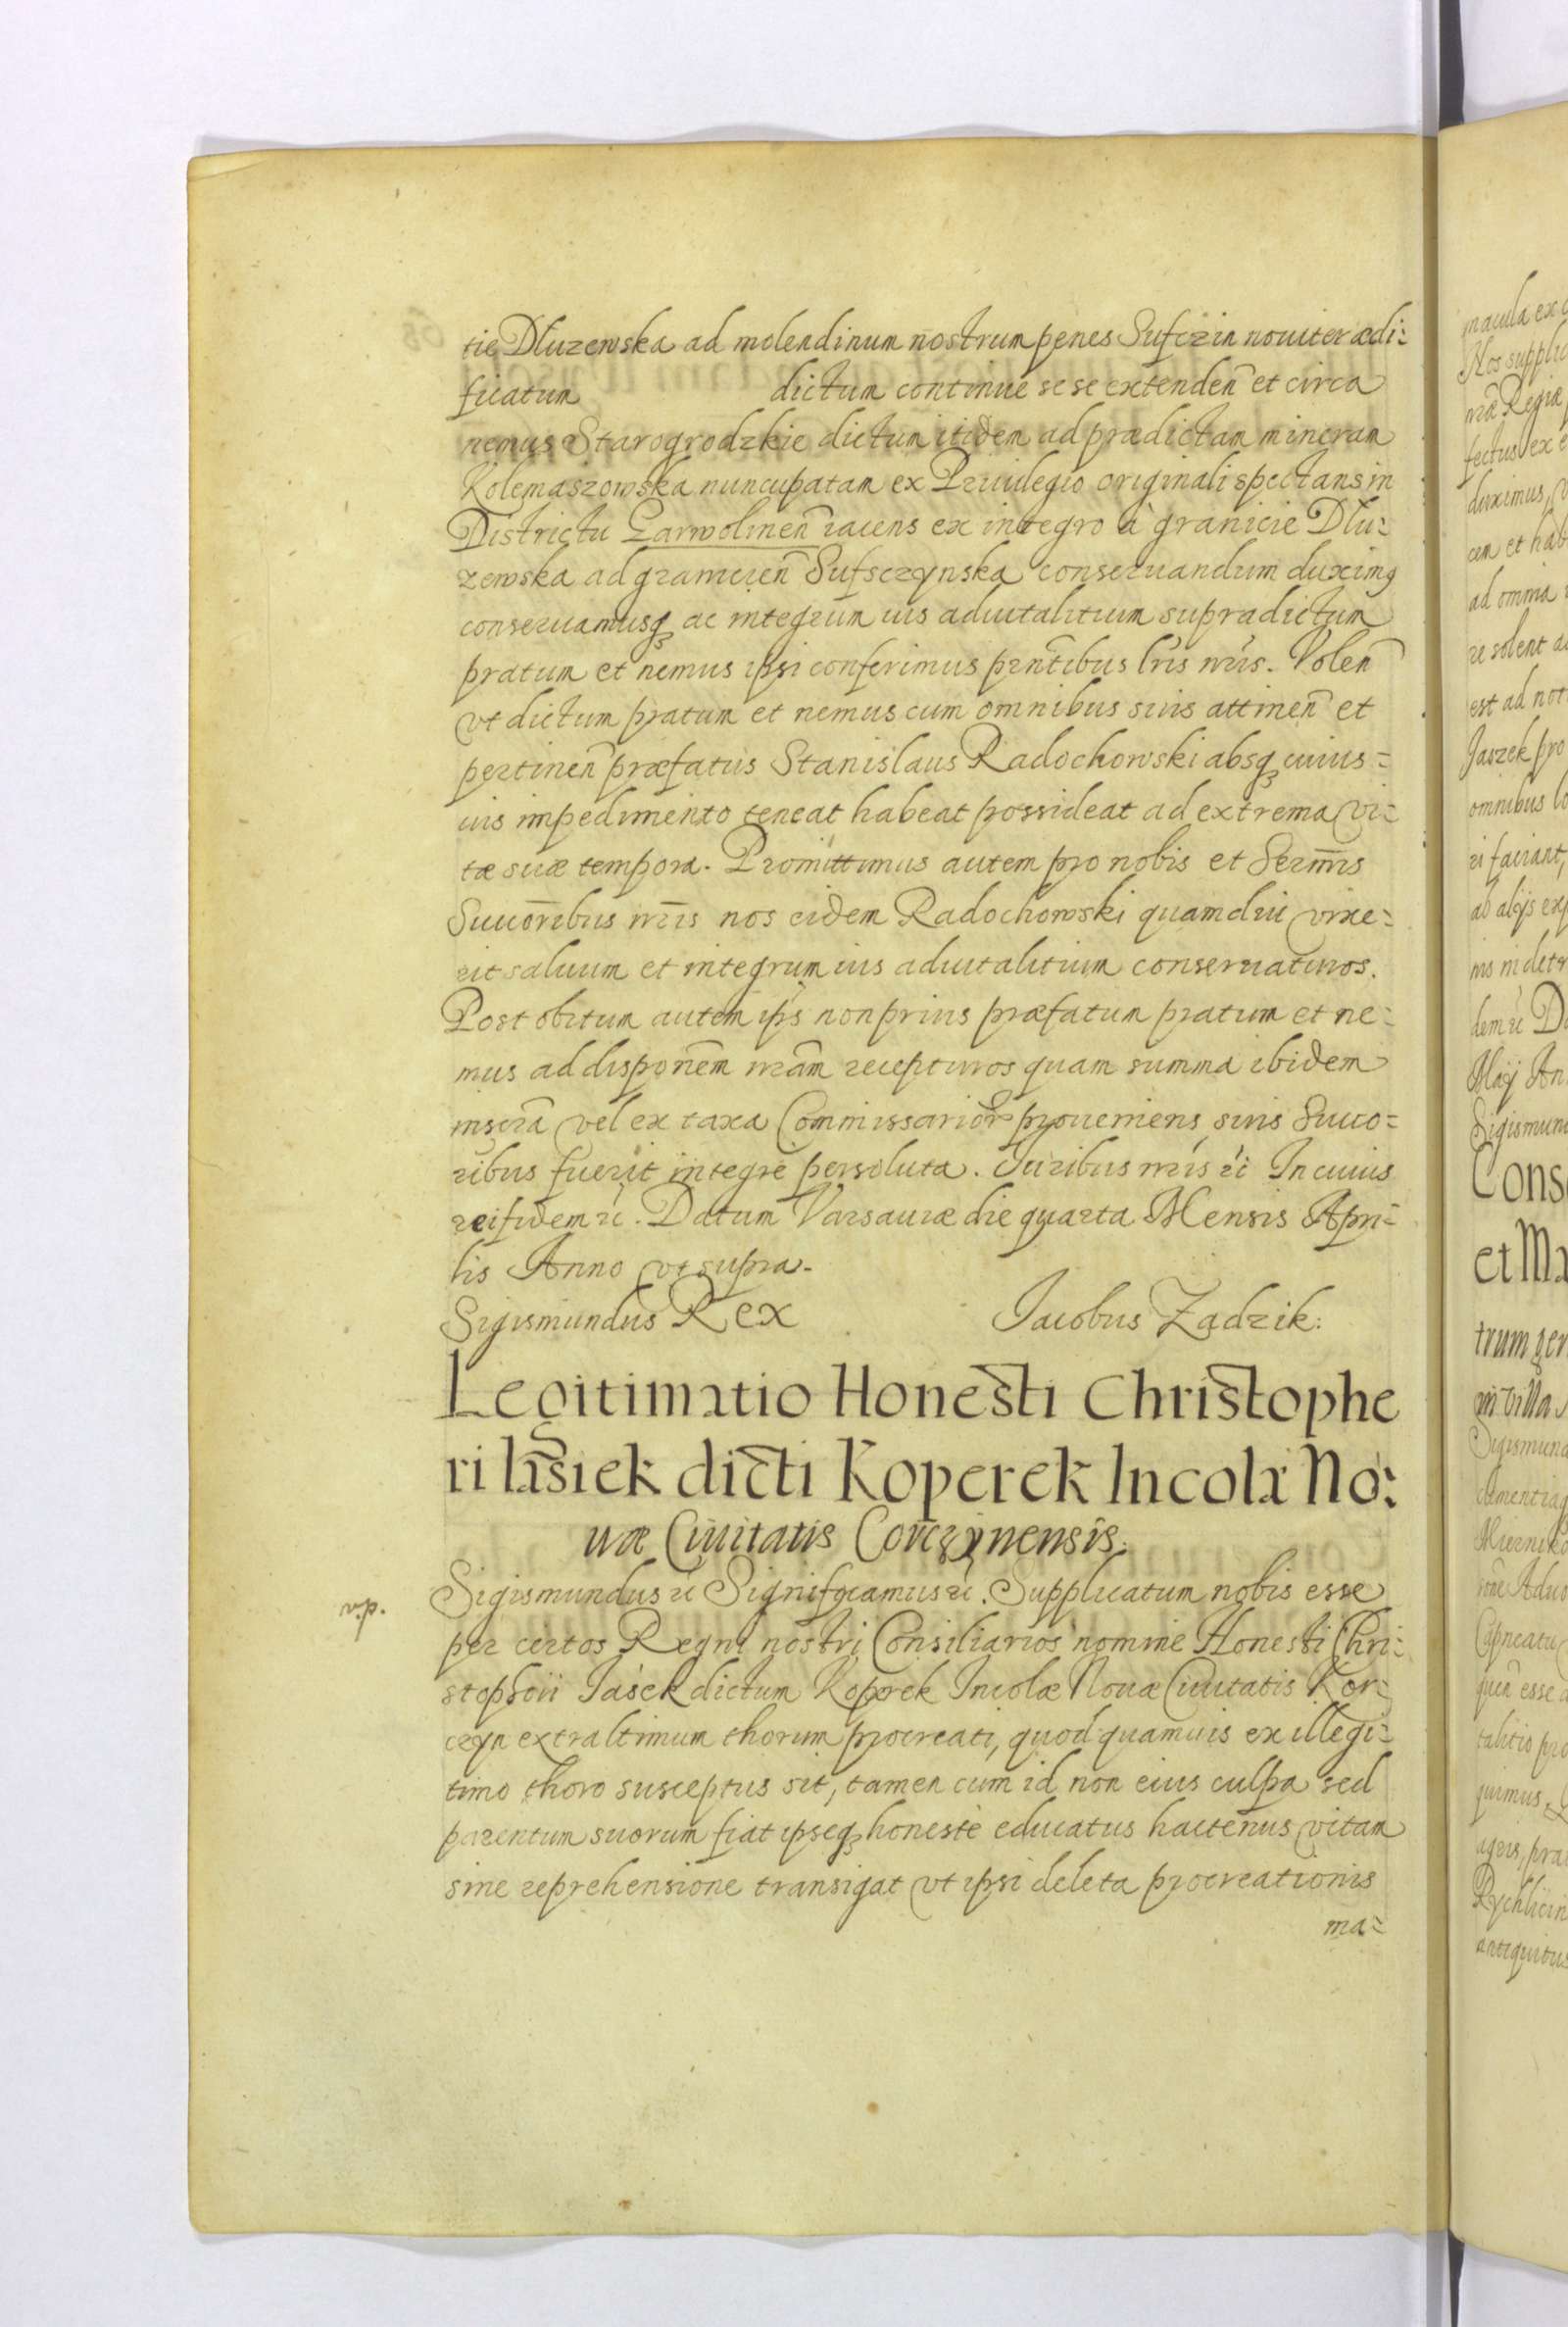 tie Dluzewska ad molendinum nostrum penes Sufczin nouiter ædi:
ficatum dictum continuè sese extenden̄ et circa
nemus Starogrodzkie dictum itidem ad prædictam mineram
Kolemaszowska nuncupatam ex Priuilegio originali spectans in
Districtu Garwolinen̄ iacens ex integro à granicie Dlu:
zewska ad granicien̄ Sufsczynska conseruandum duximꝯ
conseruamusqꝫ ac integrum ius aduitalitium supradictum
pratum et nemus ipsi conferimus pn̄tibus lr̄is nr̄is. Volen̄
vt dictum pratum et nemus cum omnibus suis attinen̄ et
pertinen̄ præfatus Stanislaus Radochowski absqꝫ cuius=
uis impedimento teneat habeat possideat ad extrema vi:
tæ suæ tempora. Promittimus autem pro nobis et Serm̄is
Succōribus nr̄is nos eidem Radochowski quamdiu vixe:
rit saluum et integrum ius aduitalitium conseruaturos.
Post obitum autem ips̄ non prius præfatum pratum et ne:
mus ad disponēm nr̄am recepturos quam summa ibidem
inscrā vel ex taxa Commissarior̄ proueniens suis Succo:
ribus fuerit integrè persoluta. Iuribus nr̄is rc̄ In cuius
rei fidem rc̄. Datum Varsauiæ die quarta Mensis Apri:
lis Anno vt supra.
Sigismundus Rex Iacobus Zadzik:
Legitimatio Honesti Christophe
ri Iasiek dicti Koperek Incolæ No:
uæ Ciuitatis Corczynensis.
v.p. Sigismundus rc̄ Significamus rc̄. Supplicatum nobis esse
per certos Regni nostri Consiliarios nomine Honesti Chri:
stophori Iasek dictum Koperek Incolæ Nouæ Ciuitatis Kor:
czyn extra ltimum thorum procreati, quod quamuis ex illegi:
timo thoro susceptus sit, tamen cum id non eius culpa sed
parentum suorum fiat ipseqꝫ honestè educatus hactenus vitam
sine reprehensione transigat vt ipsi deleta procreationis
ma=